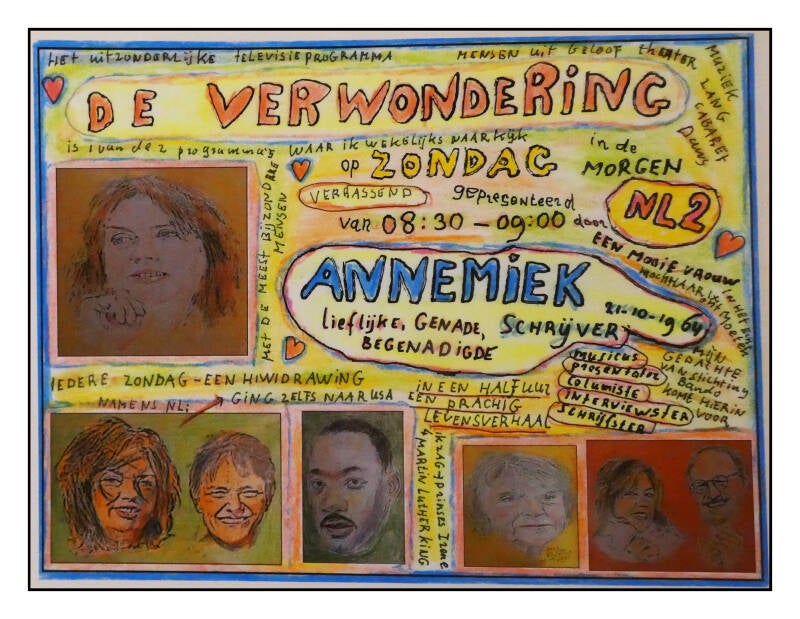 HET UITZONDERLIJKE TELEVISIEPROGRAMMA
MENSEN UIT GELOOF THEATER
MUZIEK
ZANG
CABARET
DANS
DE VERWONDERING
is 1 van de 2 programma's WAAR IK WEKELIJKS NAAR KIJK
op ZONDAG
in de
MORGEN
VERRASSEND
gepresenteerd
van 08:30 - 09:00 door
NL2
MET DE MEEST BIJZONDRRE
MENSEN
EEN MOOIE VROUW
MOCHT HAAR
IN HET ECHT
ONTMOETEN
ANNEMIEK
lieflijke, GENADE, SCHRIJVER 21-10-1964
BEGENADIGDE
MIJN
GEDACHTE
VAN STICHTING
BANDO
KOMT HIERIN
VOOR
musicus
presentator
columiste
interviewster
schrijfster
IEDERE ZONDAG - EEN HIWIDRAWING
NAMENS NL: GING ZELFS NAAR USA
IN EEN HALF UUR
EEN PRACHIG
LEVENSVERHAAL
IK ZAG + PRINSES Irene
MARTIN LUTHER KING